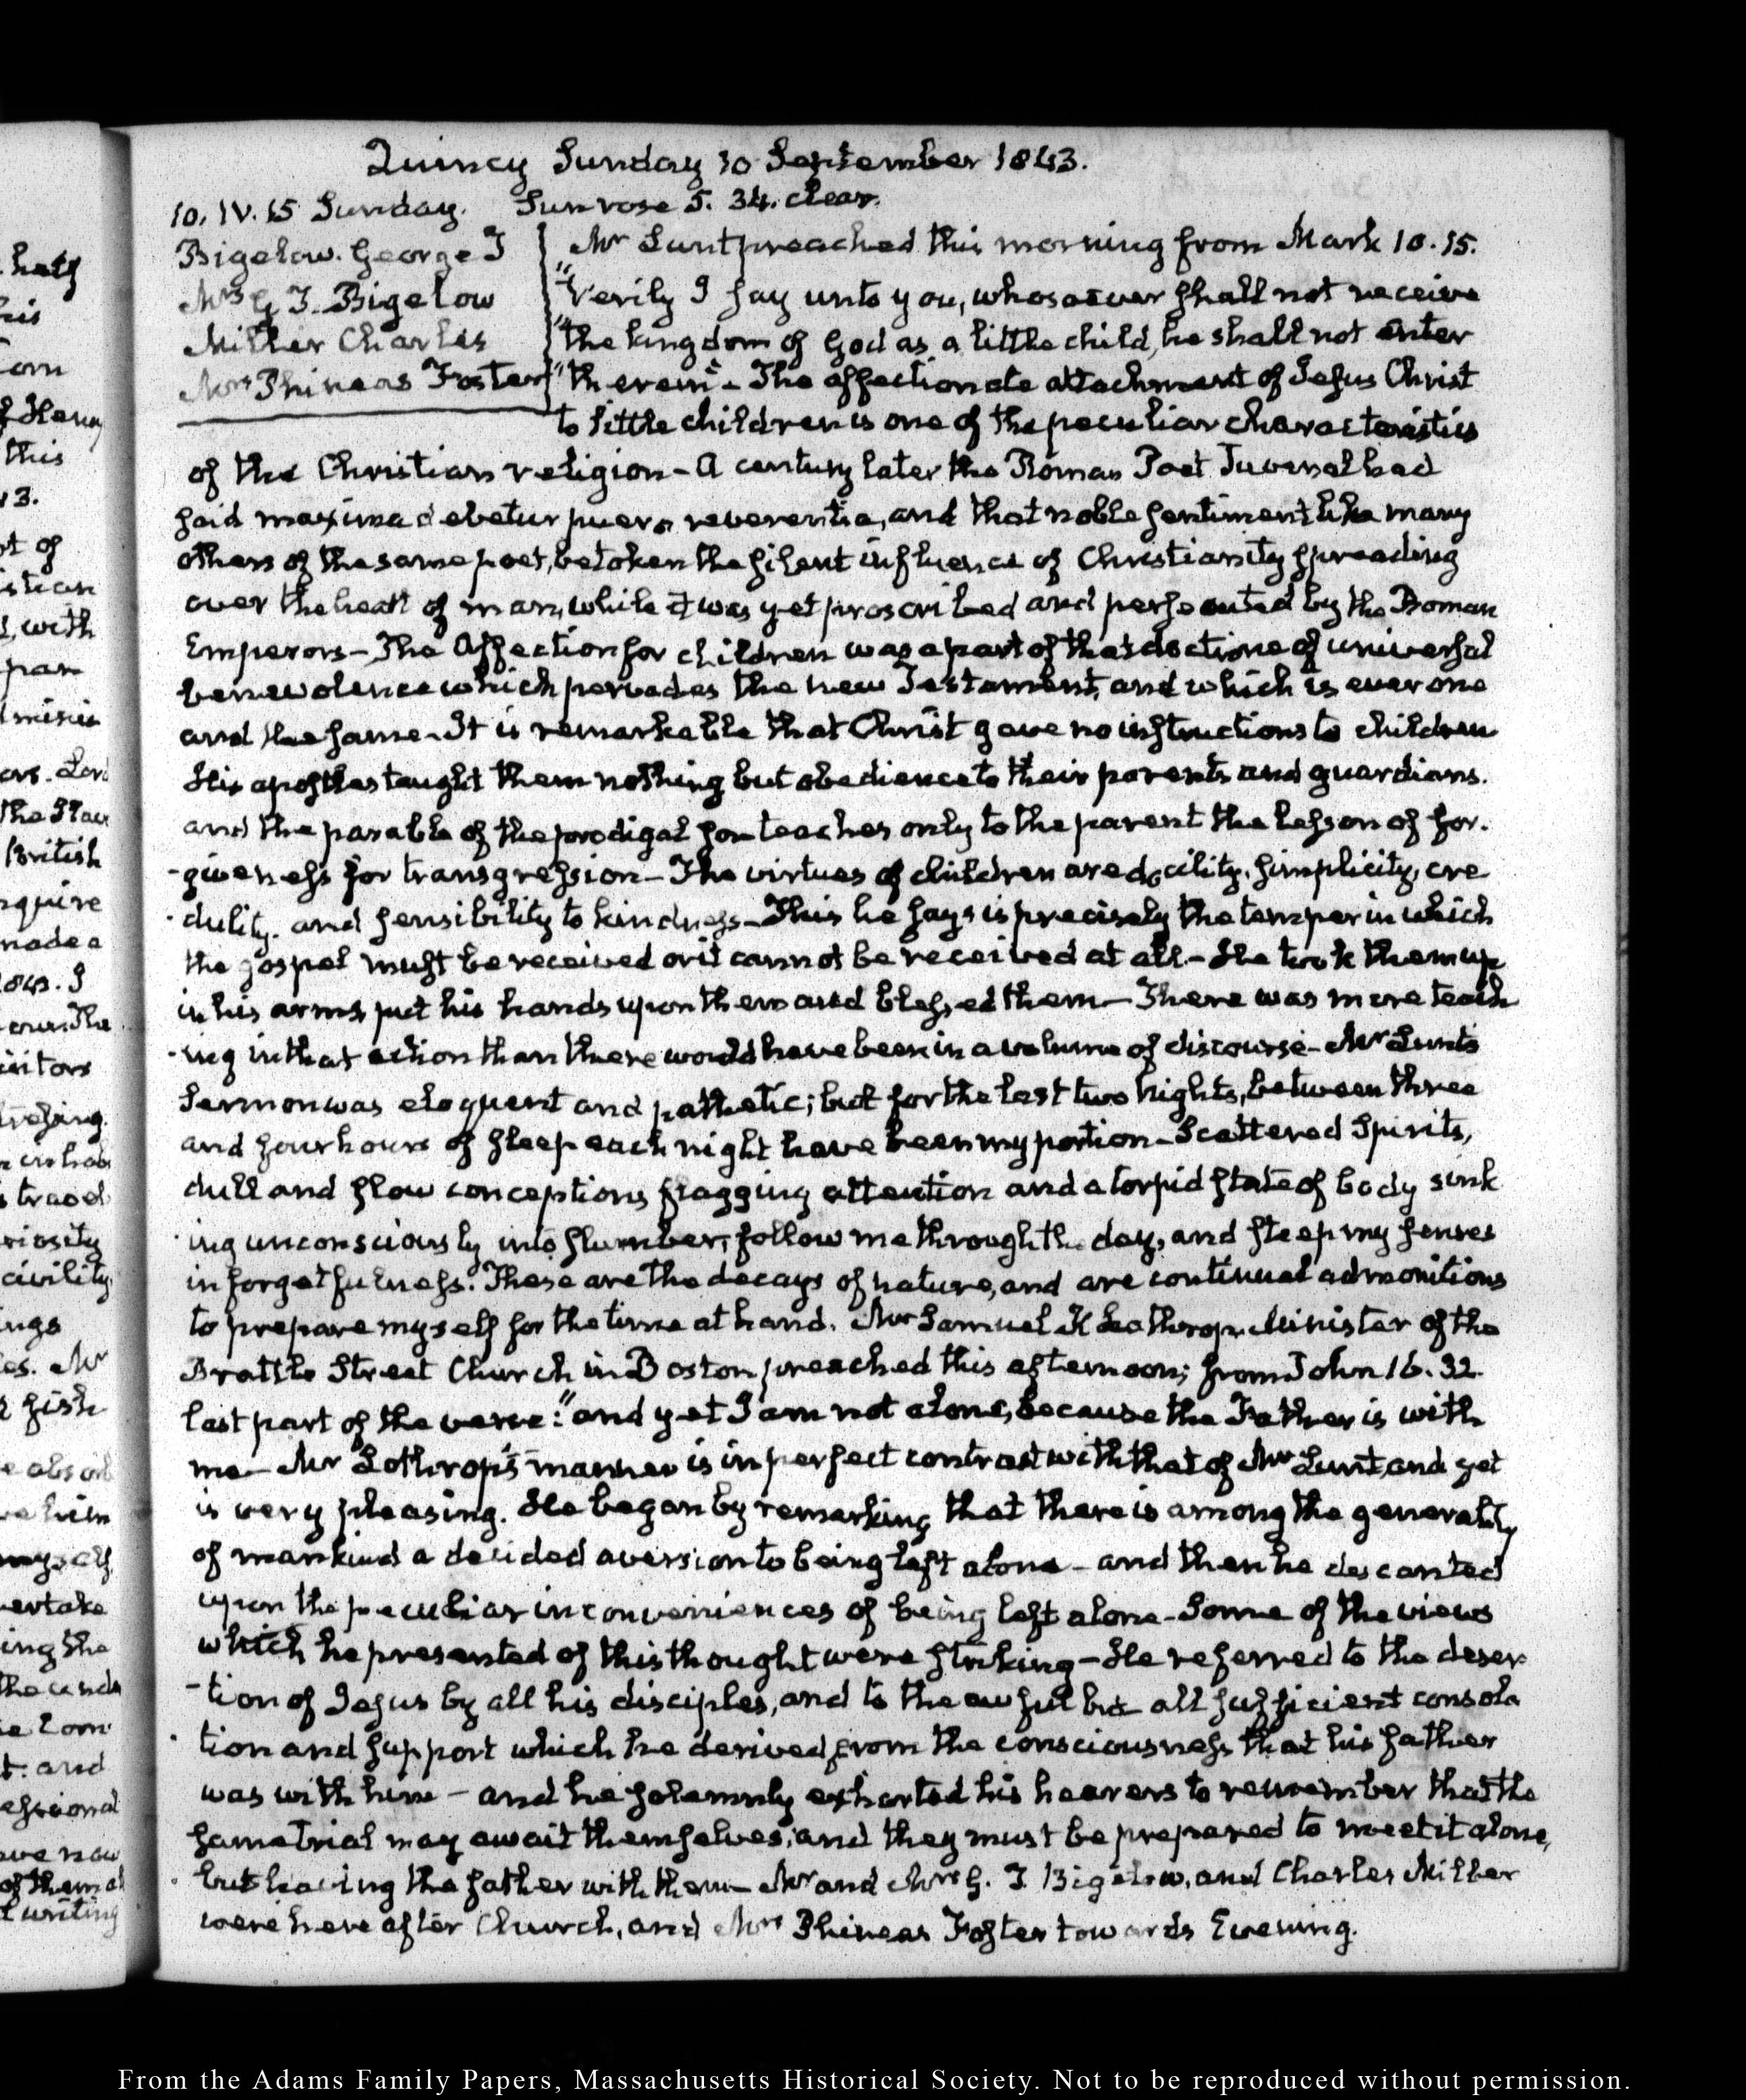 Quincy Sunday 10 September 1843.
10. IV. 15 Sunday. Sun rose 5. 34. clear.
Bigelow. George T
Mrs G T. Bigelow
Miller Charles
Mrs Phineas Foster
Mr Lunt preached this morning from Mark 10. 15.
"Verily I say unto you, whosoever shall not receive
"the kingdom of God as a little child, he shall not enter
"therein" – The affectionate attachment of Jesus Christ
to little children is one of the peculiar characteristics
of the Christian religion – A century later the Roman Poet Juvenal had
said maxima debetur puero reverentia, and that noble sentiment like many
others of the same poet, betoken the silent influence of Christianity spreading
over the heart of man, while it was yet proscribed and persecuted by the Roman
Emperors – The Affection for children was a part of that doctrine of universal
benevolence which pervades the new Testament, and which is ever one
and the same – It is remarkable that Christ gave no instructions to children
His apostles taught them nothing but obedience to their parents and guardians.
and the parable of the prodigal son teaches only to the parent the lesson of for-
-giveness for transgression – The virtues of children are docility, simplicity, cre
-dulity. and sensibility to kindness – This he says is precisely the temper in which
the gospel must be received or it cannot be received at all – He took them up
in his arms, put his hands upon them and blessed them – There was more teach
-ing in that action than there would have been in a volume of discourse – Mr Lunts
Sermon was eloquent and pathetic; but for the last two nights, between three
and four hours of sleep each night have been my portion – Scattered Spirits,
dull and slow conceptions flagging attention and a torpid state of body sink
-ing unconsciously into slumber, follow me through the day, and steep my senses
in forgetfulness. These are the decays of nature, and are continual admonitions
to prepare myself for the time at hand. Mr Samuel K Lothrop. Minister of the
Brattle Street Church in Boston preached this afternoon; from John 16. 32.
last part of the verse: "and yet I am not alone, because the Father is with
me – Mr Lothrop's manner is in perfect contrast with that of Mr Lunt, and yet
is very pleasing. He began by remarking that there is among the generality
of mankind a decided aversion to being left alone – and then he descanted
upon the peculiar inconveniences of being left alone – Some of the views
which he presented of this thought were striking – He referred to the deser
-tion of Jesus by all his disciples, and to the awful but all sufficient consola
-tion and support which he derived from the consciousness that his father
was with him – and he solemnly exhorted his hearers to remember that the
same trial may await themselves, and they must be prepared to meet it alone,
but having the father with them – Mr and Mrs G. T. Bigelow, and Charles Miller
were here after Church, and Mrs Phineas Foster towards Evening.
From the Adams Family Papers, Massachusetts Historical Society. Not to be reproduced without permission.